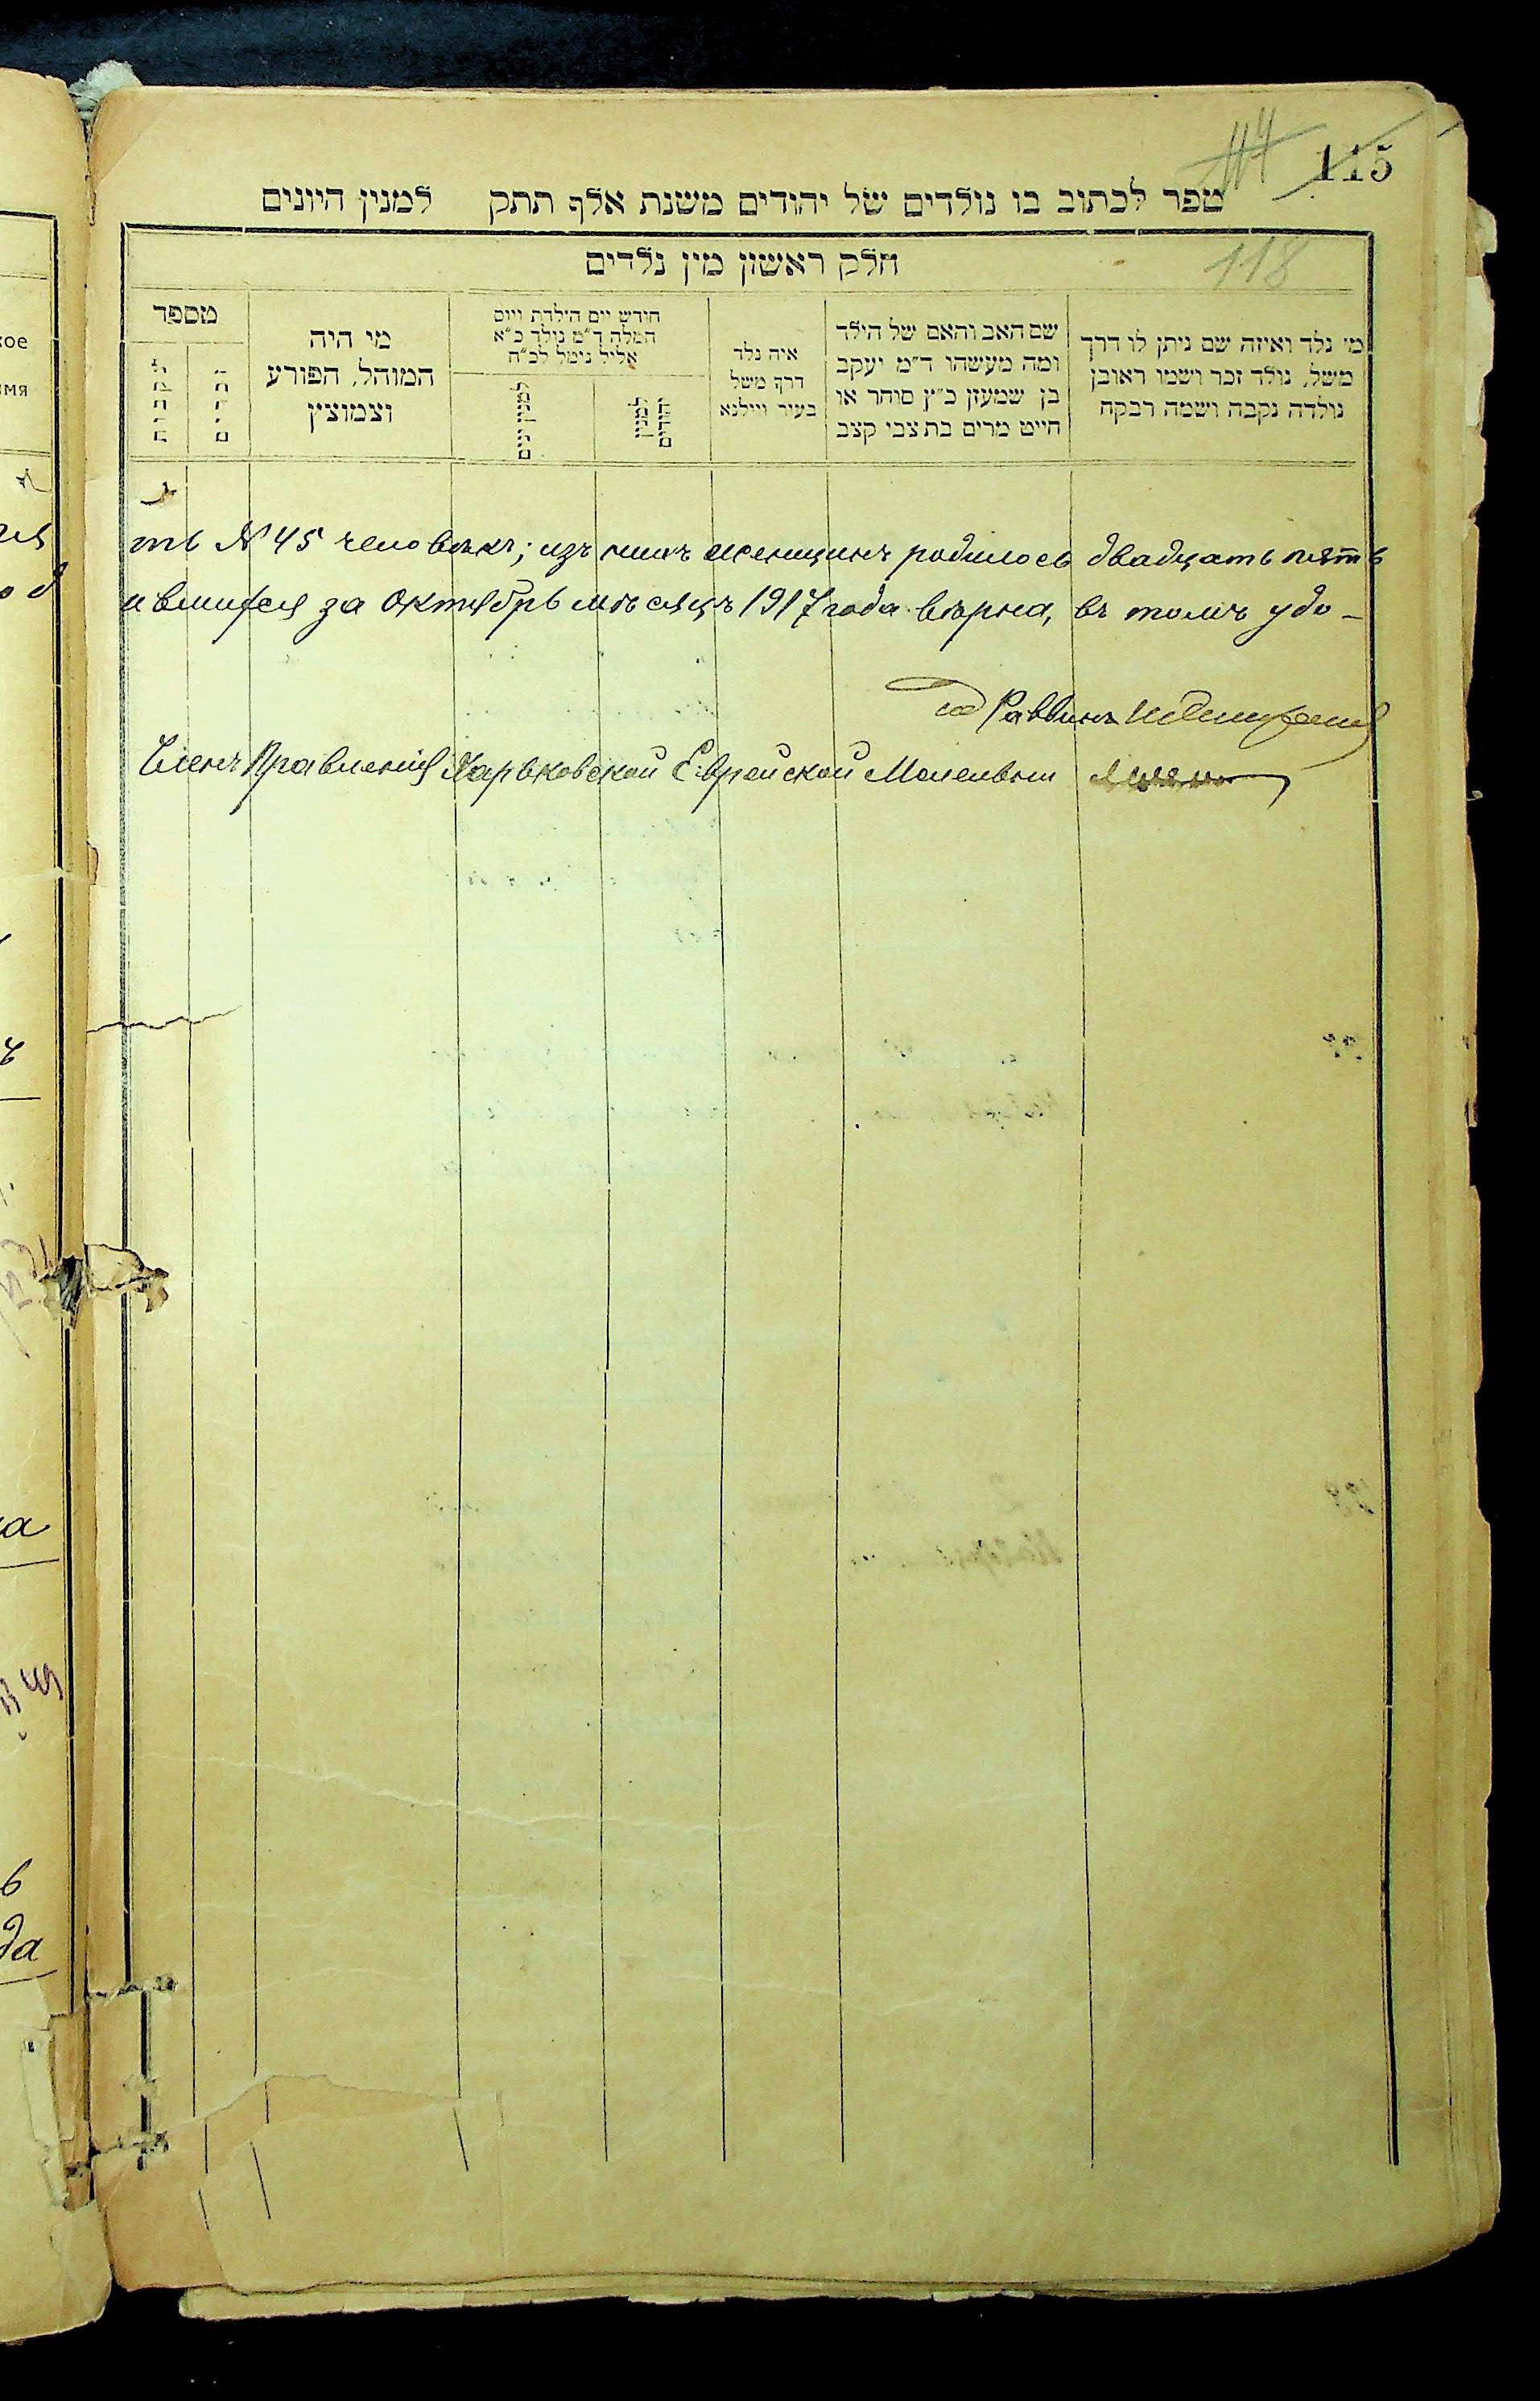 114 115
ספר לכתוב בו נולדים של יהודים משנת אלף תתק למנין היונים
118
חלק ראשון מין נלדים
מי נלד ואיזה שם ניתן לו דרך
משל, נולד זכר ושמו ראובן
נולדה נקבה ושמה רבקה
שם האב והאם של הילד
ומה מעשהו ד״מ יעקב
בן שמעון כ״ץ סוחר או
חייט מרים בת צבי קצב
איה נלד
דרך משל
בעיר ווילנא
חודש יום הילדת ויום
המלה ד״מ נולד כ״א
אליל נימל לכ״ח
למנין יהודים
למנין יונים
מי היה
המוהל, הפורע
וצמוצין
מספר
זכרים
נקבות
ть № 45 человѣкъ; изъ нихъ женщинъ родилось двадцать пять
ившихся за Октябрь мѣсяцъ 1917 года вѣрна, въ томъ удо-
Раввинъ
Членъ Правленія Харьковской Еврейской Молельни
кое
имя
да